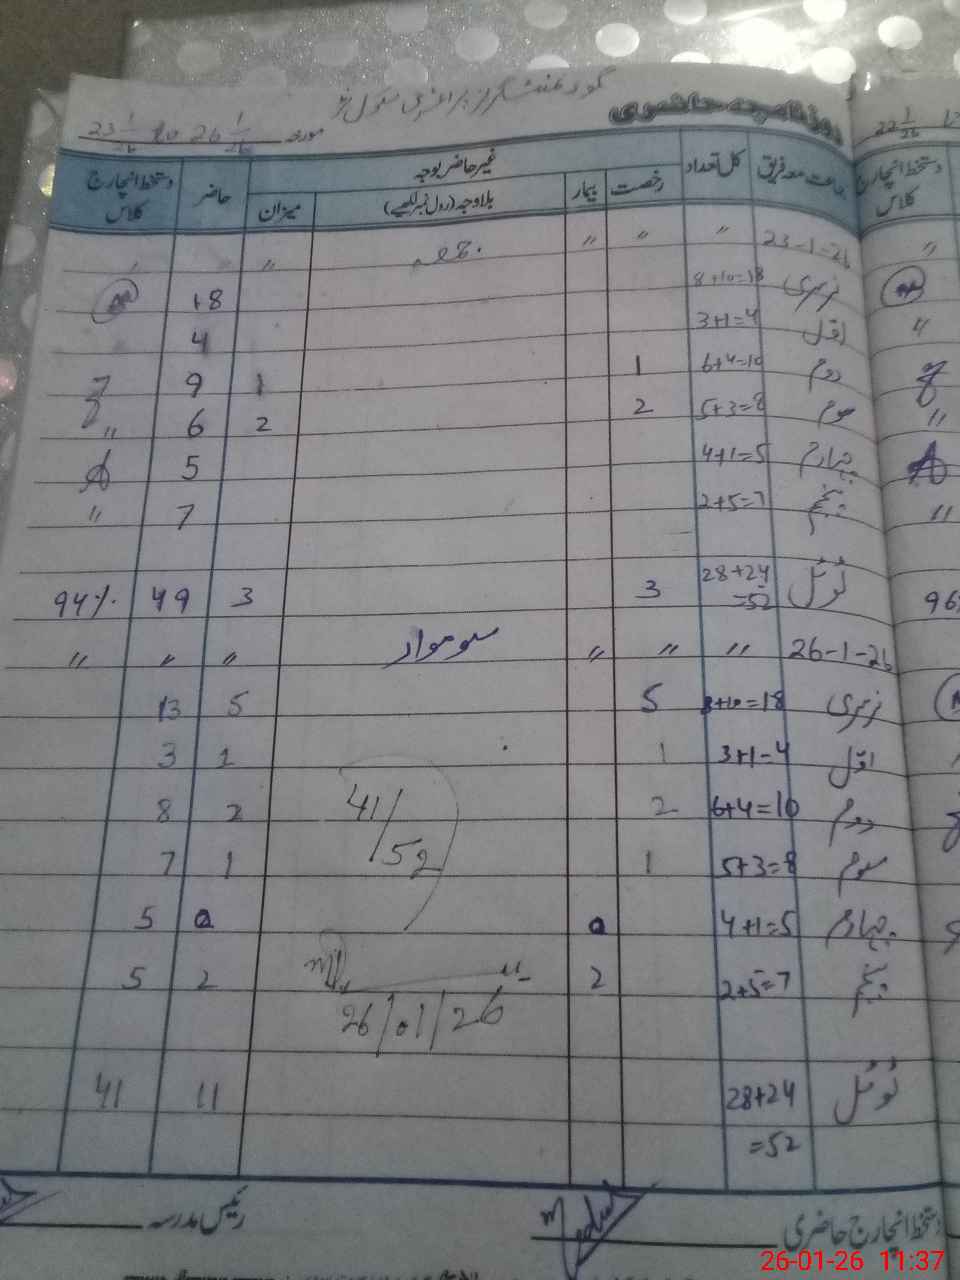 گورنمنٹ گرلز پرائمری سکول
روزنامچہ حاضری
مورخہ 26 1/26 to 23 1/26
22 1/26
جماعت معہ فریق کل تعداد غیر حاضر بوجہ حاضر دستخط انچارج کلاس
رخصت بیمار بلاوجہ (رول نمبر لکھیے) میزان
دستخط انچارج کلاس
23-1-26 " " " جمعہ " "
نرسری 8+10=18 18
اول 3+1=4 4
دوم 6+4=10 1 1 9
سوم 5+3=8 2 2 6 "
چہارم 4+1=5 5
پنجم 2+5=7 7 "
ٹوٹل 28+24=52 3 3 49 94%
96
26-1-26 " " " سوموار " " "
نرسری 8+10=18 5 5 13
اول 3+1=4 1 1 3
دوم 6+4=10 2 2 8
سوم 5+3=8 1 1 7
41/52
چہارم 4+1=5 0 0 5
پنجم 2+5=7 2 2 5
26/01/26
ٹوٹل 28+24 11 41
=52
دستخط انچارج حاضری
رئیس مدرسہ
26-01-26 11:37